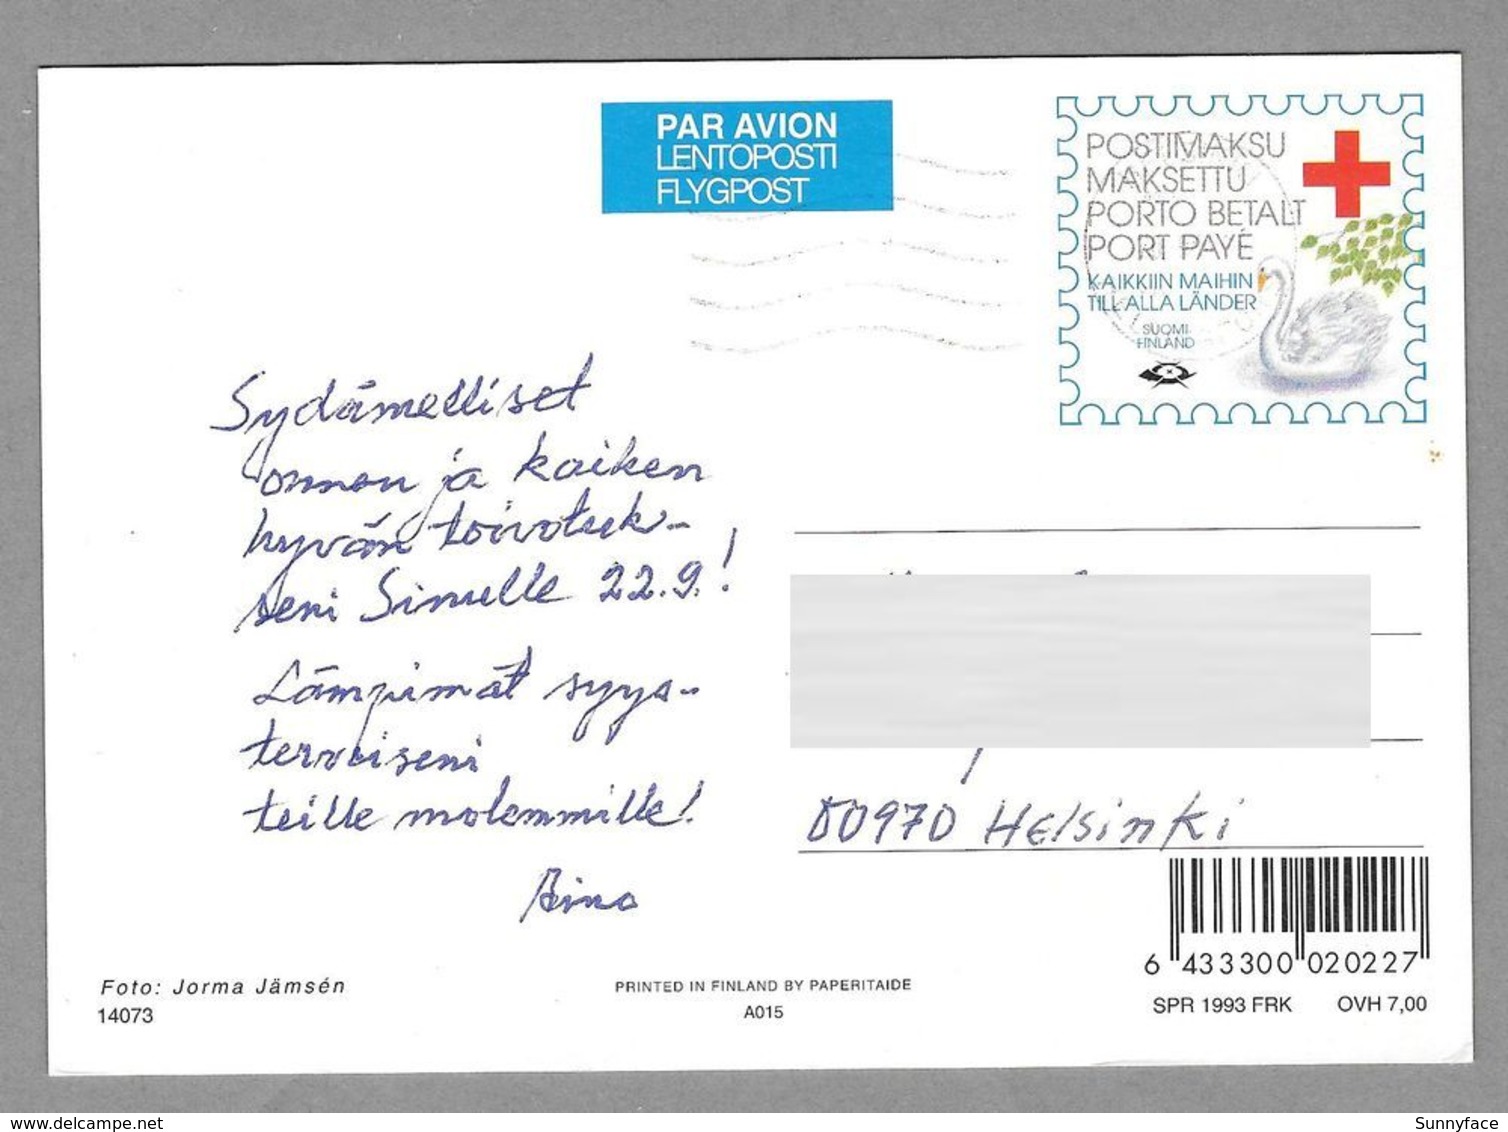 PAR AVION
LENTOPOSTI
FLYGPOST
POSTIMAKSU
MAKSETTU
PORTO BETALT
PORT PAYÉ
KAIKKIIN MAIHIN
TILL ALLA LÄNDER
SUOMI
FINLAND
Sydämelliset
onnen ja kaiken
hyvän toivotuk-
seni Sinulle 22.9.!
Lämpimät syys-
terveiseni
teille molemmille!
Aino
00970 Helsinki
6 433300 020227
SPR 1993 FRK OVH 7,00
Foto: Jorma Jämsén
14073
PRINTED IN FINLAND BY PAPERITAIDE
A015
delcampe.net
Sunnyface